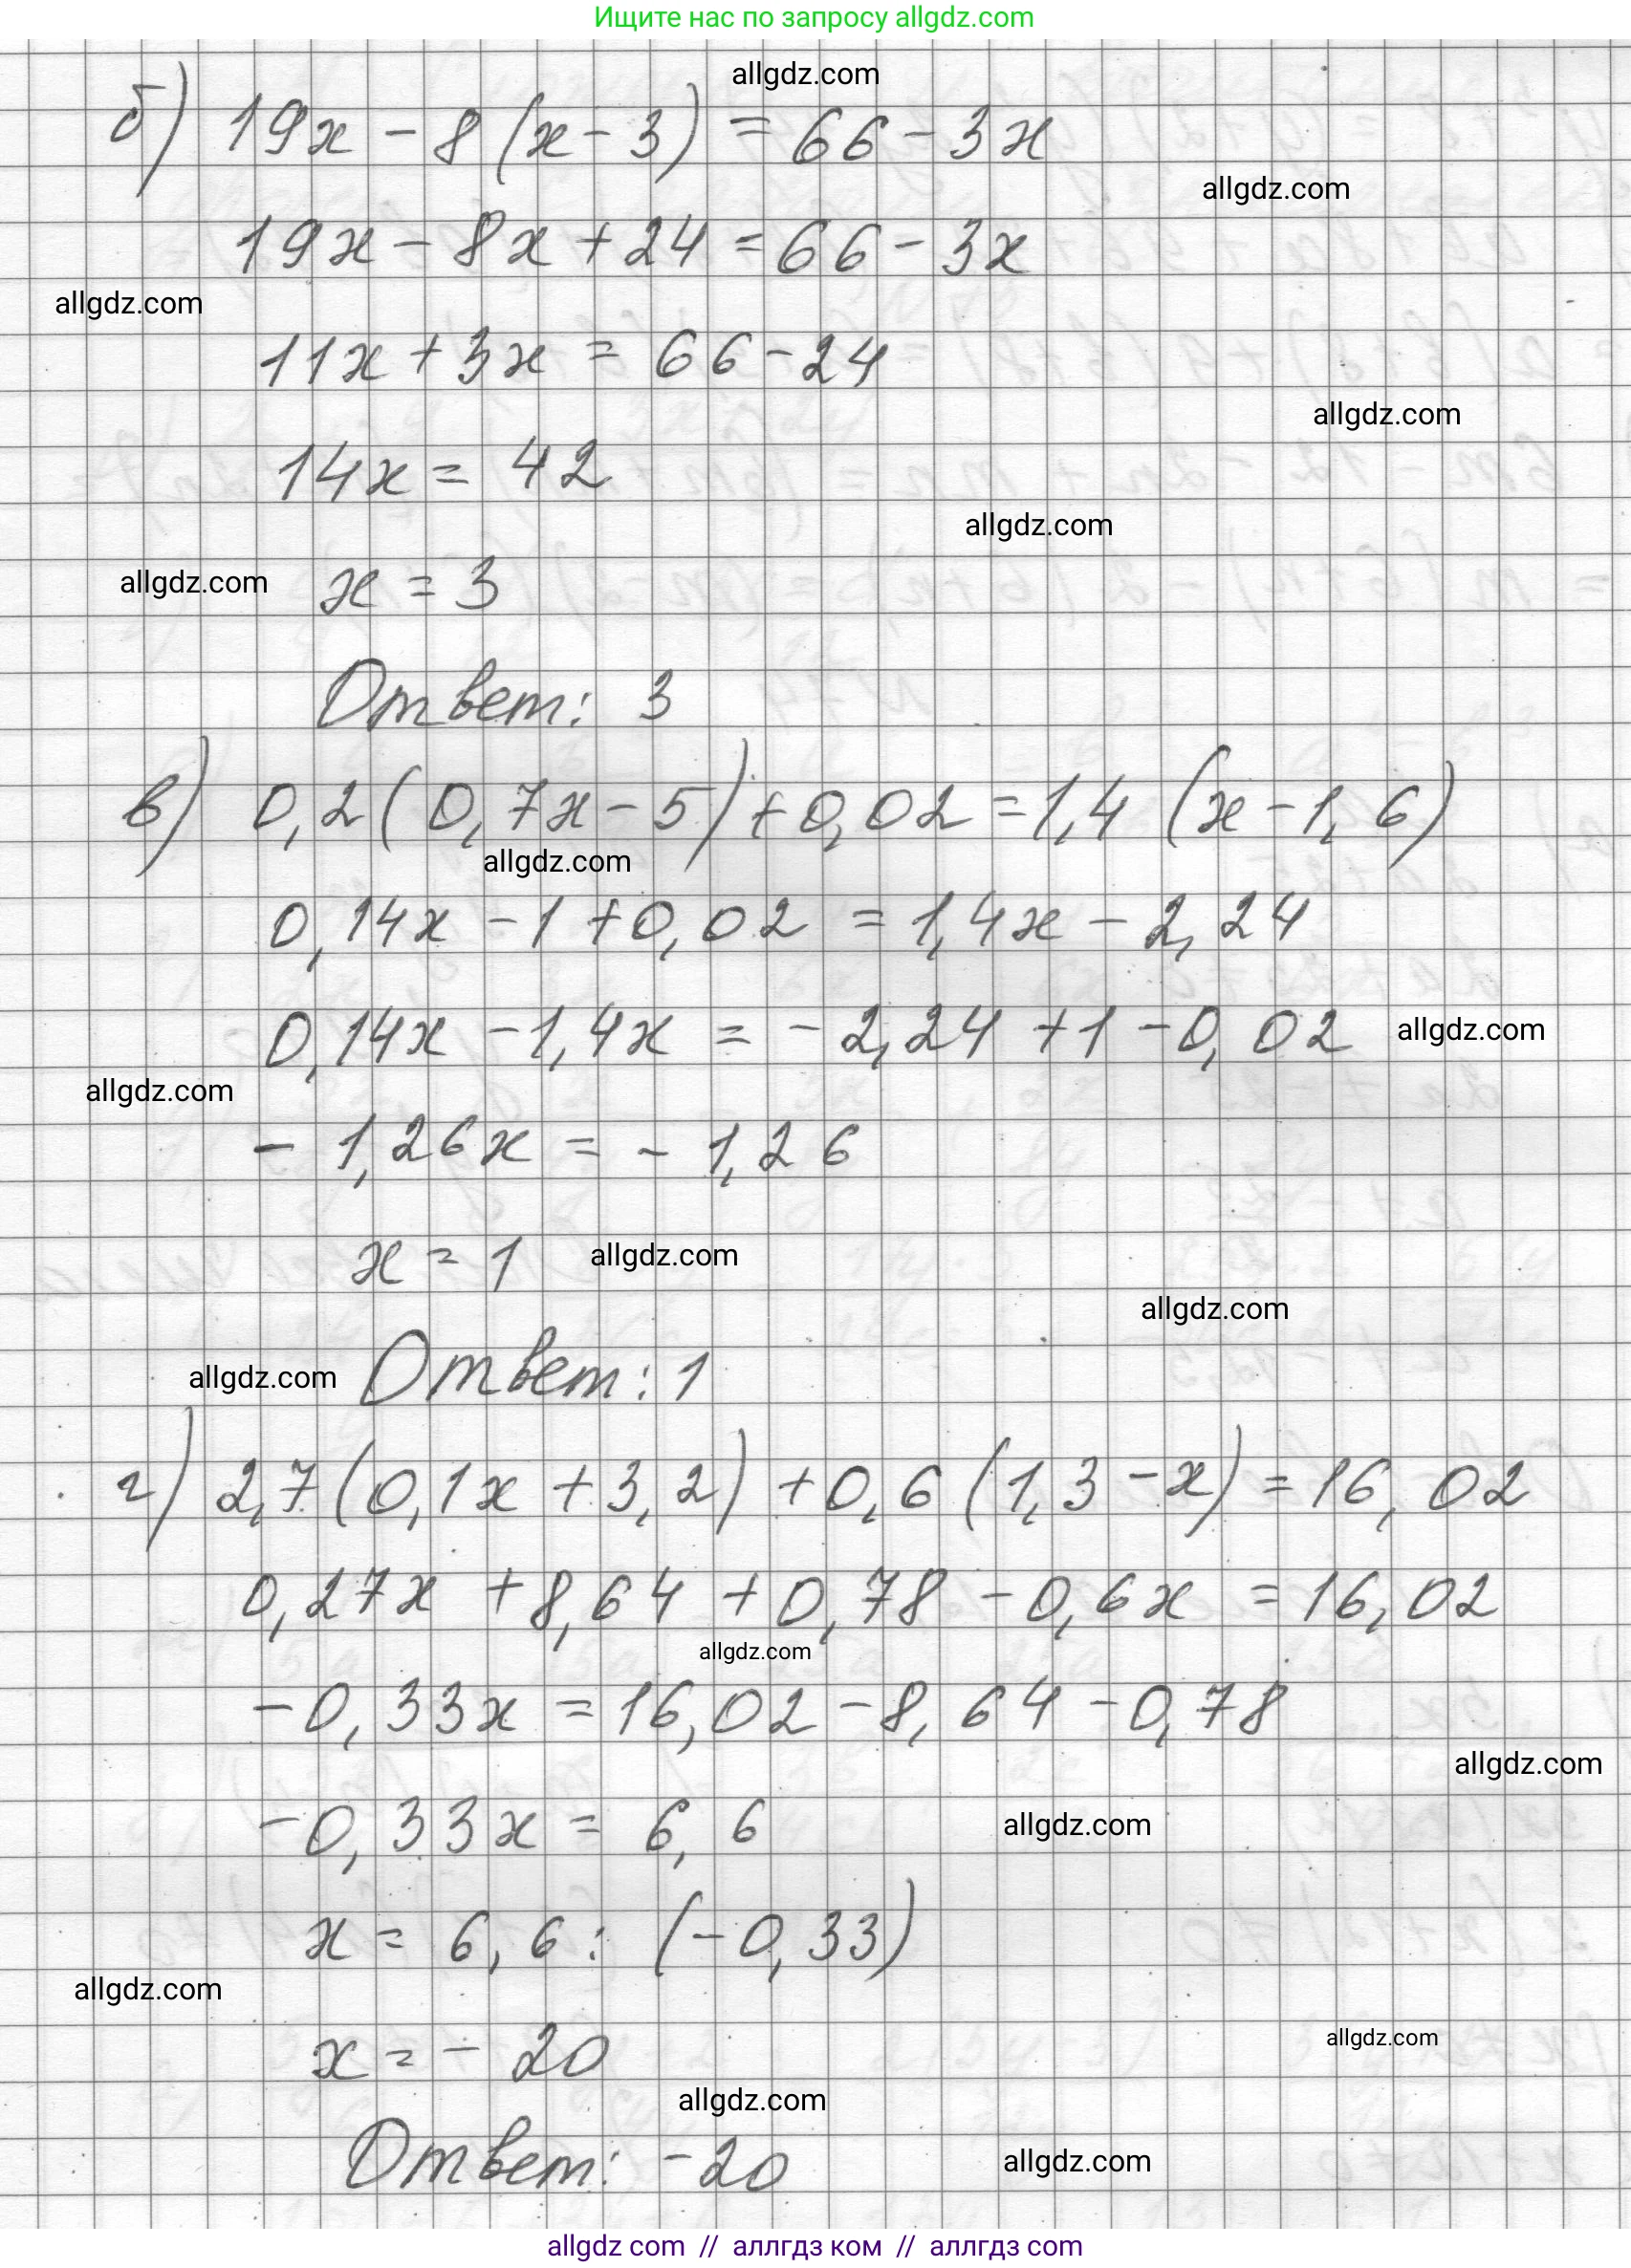 Ищите нас по запросу allgdz.com
allgdz.com
б) 19x - 8 (x - 3) = 66 - 3x
allgdz.com
19x - 8x + 24 = 66 - 3x
allgdz.com
11x + 3x = 66 - 24
allgdz.com
14x = 42
allgdz.com
allgdz.com
x = 3
Ответ: 3
в) 0,2 (0,7x - 5) + 0,02 = 1,4 (x - 1,6)
allgdz.com
0,14x - 1 + 0,02 = 1,4x - 2,24
0,14x - 1,4x = - 2,24 + 1 - 0,02
allgdz.com
allgdz.com
- 1,26x = - 1,26
x = 1
allgdz.com
allgdz.com
allgdz.com
Ответ: 1
г) 2,7 (0,1x + 3,2) + 0,6 (1,3 - x) = 16,02
0,27x + 8,64 + 0,78 - 0,6x = 16,02
allgdz.com
-0,33x = 16,02 - 8,64 - 0,78
allgdz.com
-0,33x = 6,6
allgdz.com
x = 6,6 : (-0,33)
allgdz.com
allgdz.com
x = - 20
allgdz.com
Ответ: -20
allgdz.com
allgdz com // аллгдз ком // аллгдз com